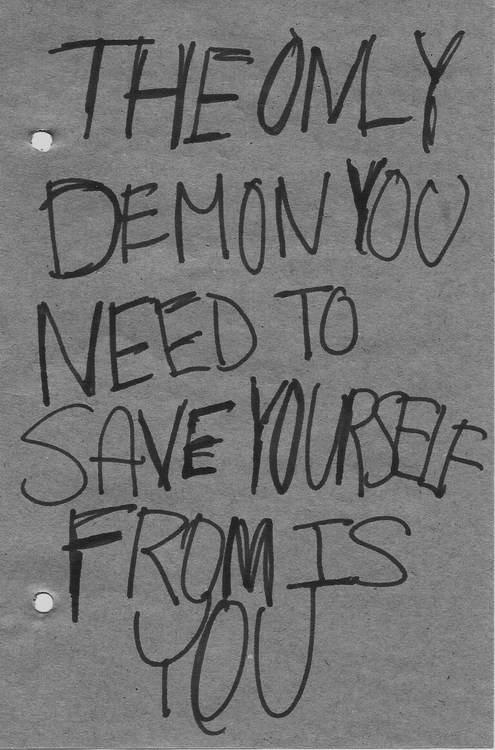 THE ONLY
DEMON YOU
NEED TO
SAVE YOURSELF
FROM IS
YOU